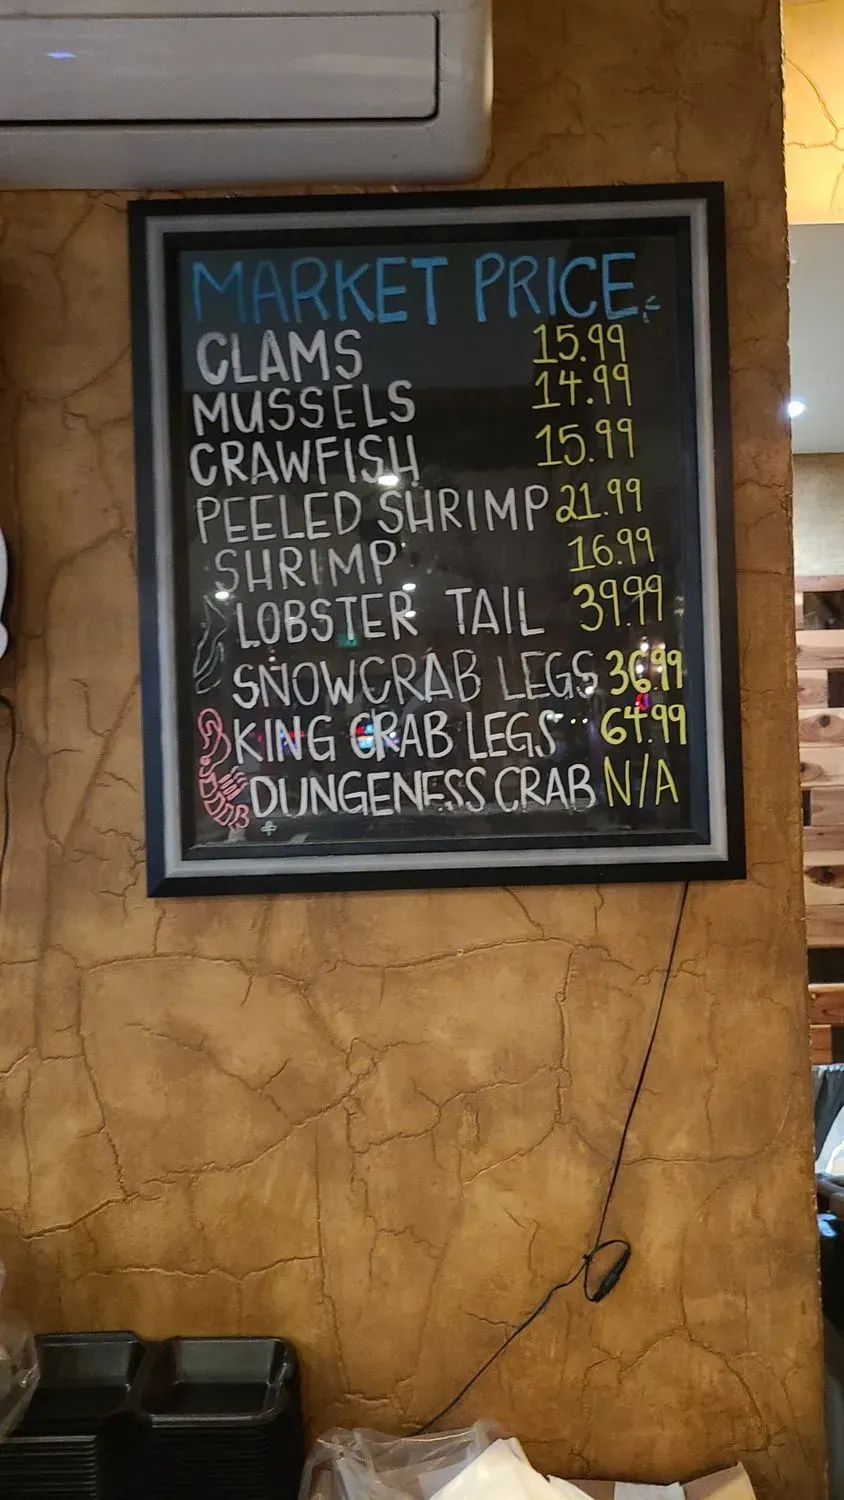 MARKET PRICE
CLAMS 15.99
MUSSELS 14.99
CRAWFISH 15.99
PEELED SHRIMP 21.99
SHRIMP 16.99
LOBSTER TAIL 39.99
SNOWCRAB LEGS 36.99
KING CRAB LEGS 64.99
DUNGENESS CRAB N/A